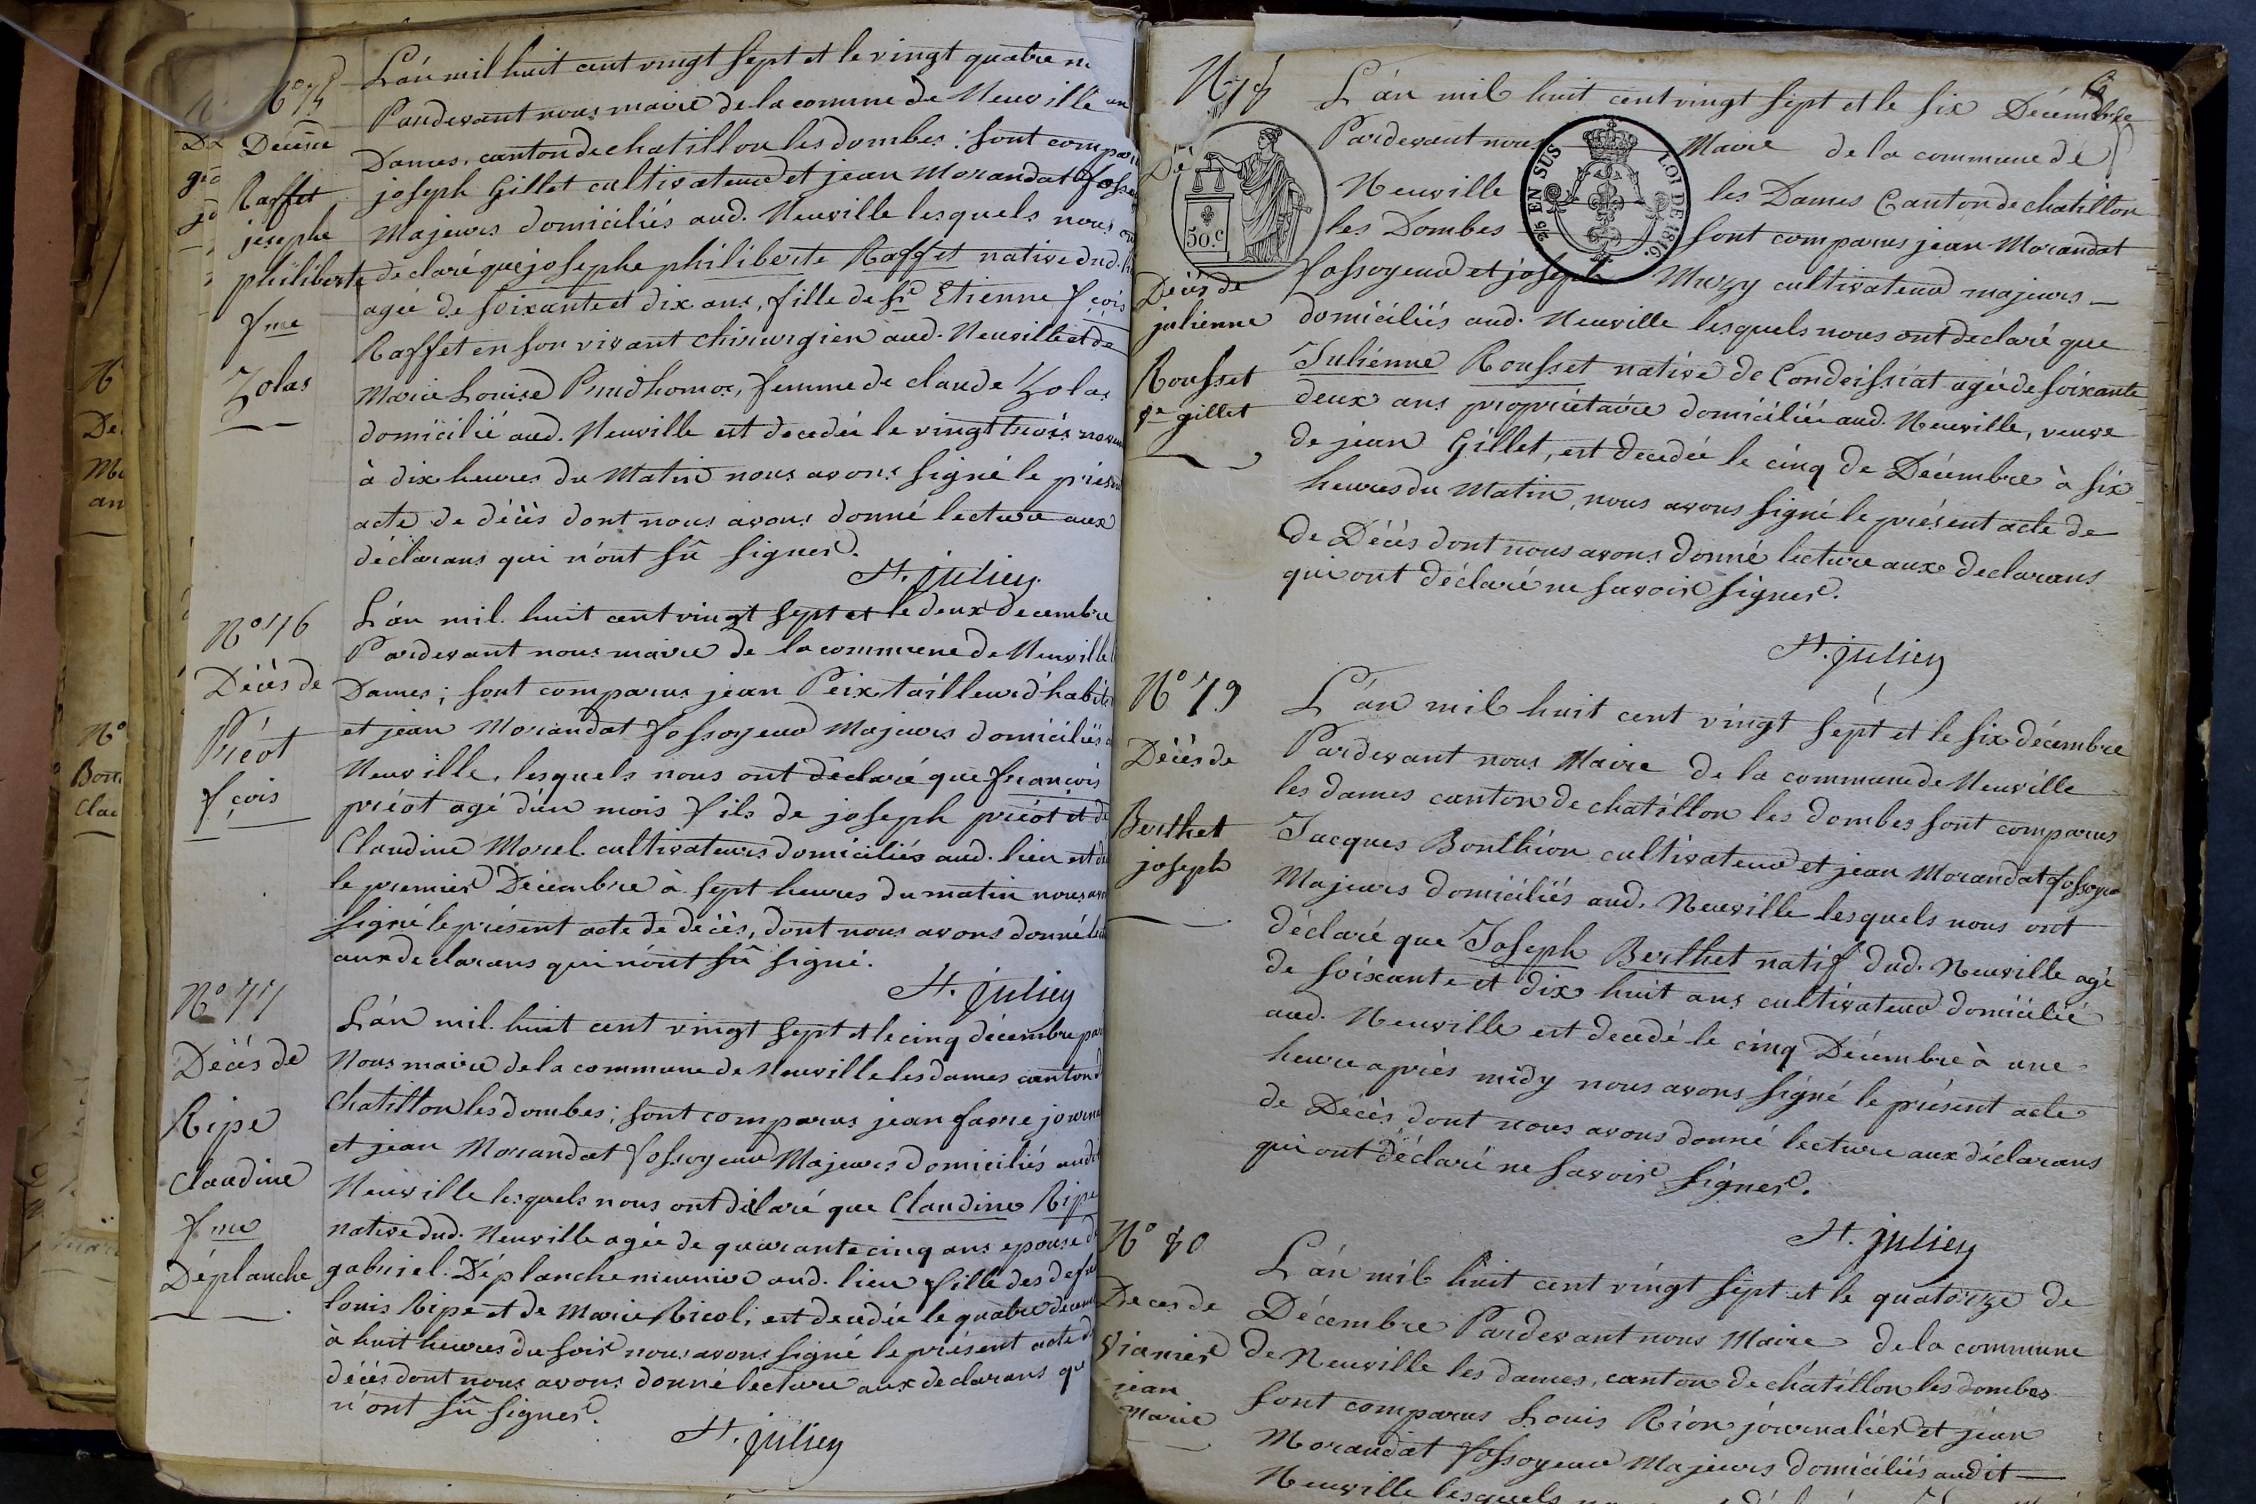 N° 75
Décès de
Raffet
josephe
philiberte
fme
Zolas
L'an mil huit cent vingt sept et le vingt quatre
Pardevant nous maire de la comme de Neuville
Dames, canton de chatillon les dombes : sont compar
joseph Gillet cultivateur et jean Morandat fosso
Majeurs domiciliés aud. Neuville lesquels nous
declaré que josephe philiberte Raffet native dud.
agée de soixante et dix ans, fille de Sr Etienne fçois
Raffet en son vivant chirurgien aud. Neuville et de
Marie Louise Prudhomos, femme de claude Zolas
domicilié aud. Neuville est decedée le vingt trois nov
à dix heures du Matin nous avons signé le présent
acte de décès dont nous avons donné lecture aux
déclarans qui n'ont sû signer.
St. julien
N° 76
Décès de
Préot
fçois
L'an mil huit cent vingt sept et le deux decembre
Pardevant nous maire de la commune de Neuville
Dames ; sont comparus jean Peix tailleur d'habits
et jean Morandat fossoyeur Majeurs domiciliés
Neuville, lesquels nous ont déclaré que françois
préot agé d'un mois fils de joseph préot et de
Claudine Morel cultivateurs domiciliés aud. lieu est
le premier Décembre à sept heures du matin nous av
signé le présent acte de décès, dont nous avons donné lec
aux declarans qui n'ont sû signé.
St. julien
N° 77
Décès de
Ripe
Claudine
fme
Déplanche
L'an mil huit cent vingt sept et le cinq décembre par
Nous maire de la commune de Neuville les dames canton d
Chatillon les dombes ; sont comparus jean favre journa
et jean Morandat fossoyeur Majeurs domiciliés aud
Neuville lesquels nous ont déclaré que Claudine Ripe
native dud. Neuville agée de quarante cinq ans epouse d
gabriel Déplanche meunier aud. lieu fille des def
louis Ripe et de Marie Ricol, est decedée le quatre decem
à huit heures du soir nous avons signé le présent acte d
décès dont nous avons donné lecture aux declarans qui
n'ont sû signer.
St. julien
N° 78
Décès de
julienne
Rousset
ve gillet
50.c
25 EN SUS
LOI DE 1816.
L'an mil huit cent vingt sept et le six Décembre
Pardevant nous Maire de la commune de
Neuville les Dames Canton de chatillon
les Dombes sont comparus jean Morandat
fossoyeur et joseph Muzy cultivateur majeurs
domiciliés aud. Neuville lesquels nous ont declaré que
Julienne Rousset native de Condeissiat agée de soixante
deux ans propriétaire domiciliée aud. Neuville, veuve
de jean Gillet, est decedée le cinq de Décembre à six
heures du Matin, nous avons signé le présent acte de
de Décès dont nous avons donné lecture aux declarans
qui ont déclaré ne savoir signer.
St. julien
N° 79
Décès de
Berthet
joseph
L'an mil huit cent vingt sept et le six décembre
Pardevant nous Maire de la commune de Neuville
les dames canton de chatillon les dombes sont comparus
Jacques Bonthion cultivateur et jean Morandat fossoyeur
Majeurs domiciliés aud. Neuville lesquels nous ont
déclaré que Joseph Berthet natif dud. Neuville agé
de soixante et dix huit ans cultivateur domicilié
aud. Neuville est decedé le cinq Décembre à une
heure après midy nous avons signé le présent acte
de Décès dont nous avons donné lecture aux déclarans
qui ont déclaré ne savoir signer.
St. julien
N° 80
Deces de
Vianier
jean
Marie
L'an mil huit cent vingt sept et le quatorze de
Décembre Pardevant nous Maire de la commune
de Neuville les dames, canton de chatillon les dombes
sont comparus Louis Rion journalier et jean
Morandat fossoyeur Majeurs domiciliés audit
Neuville lesquels